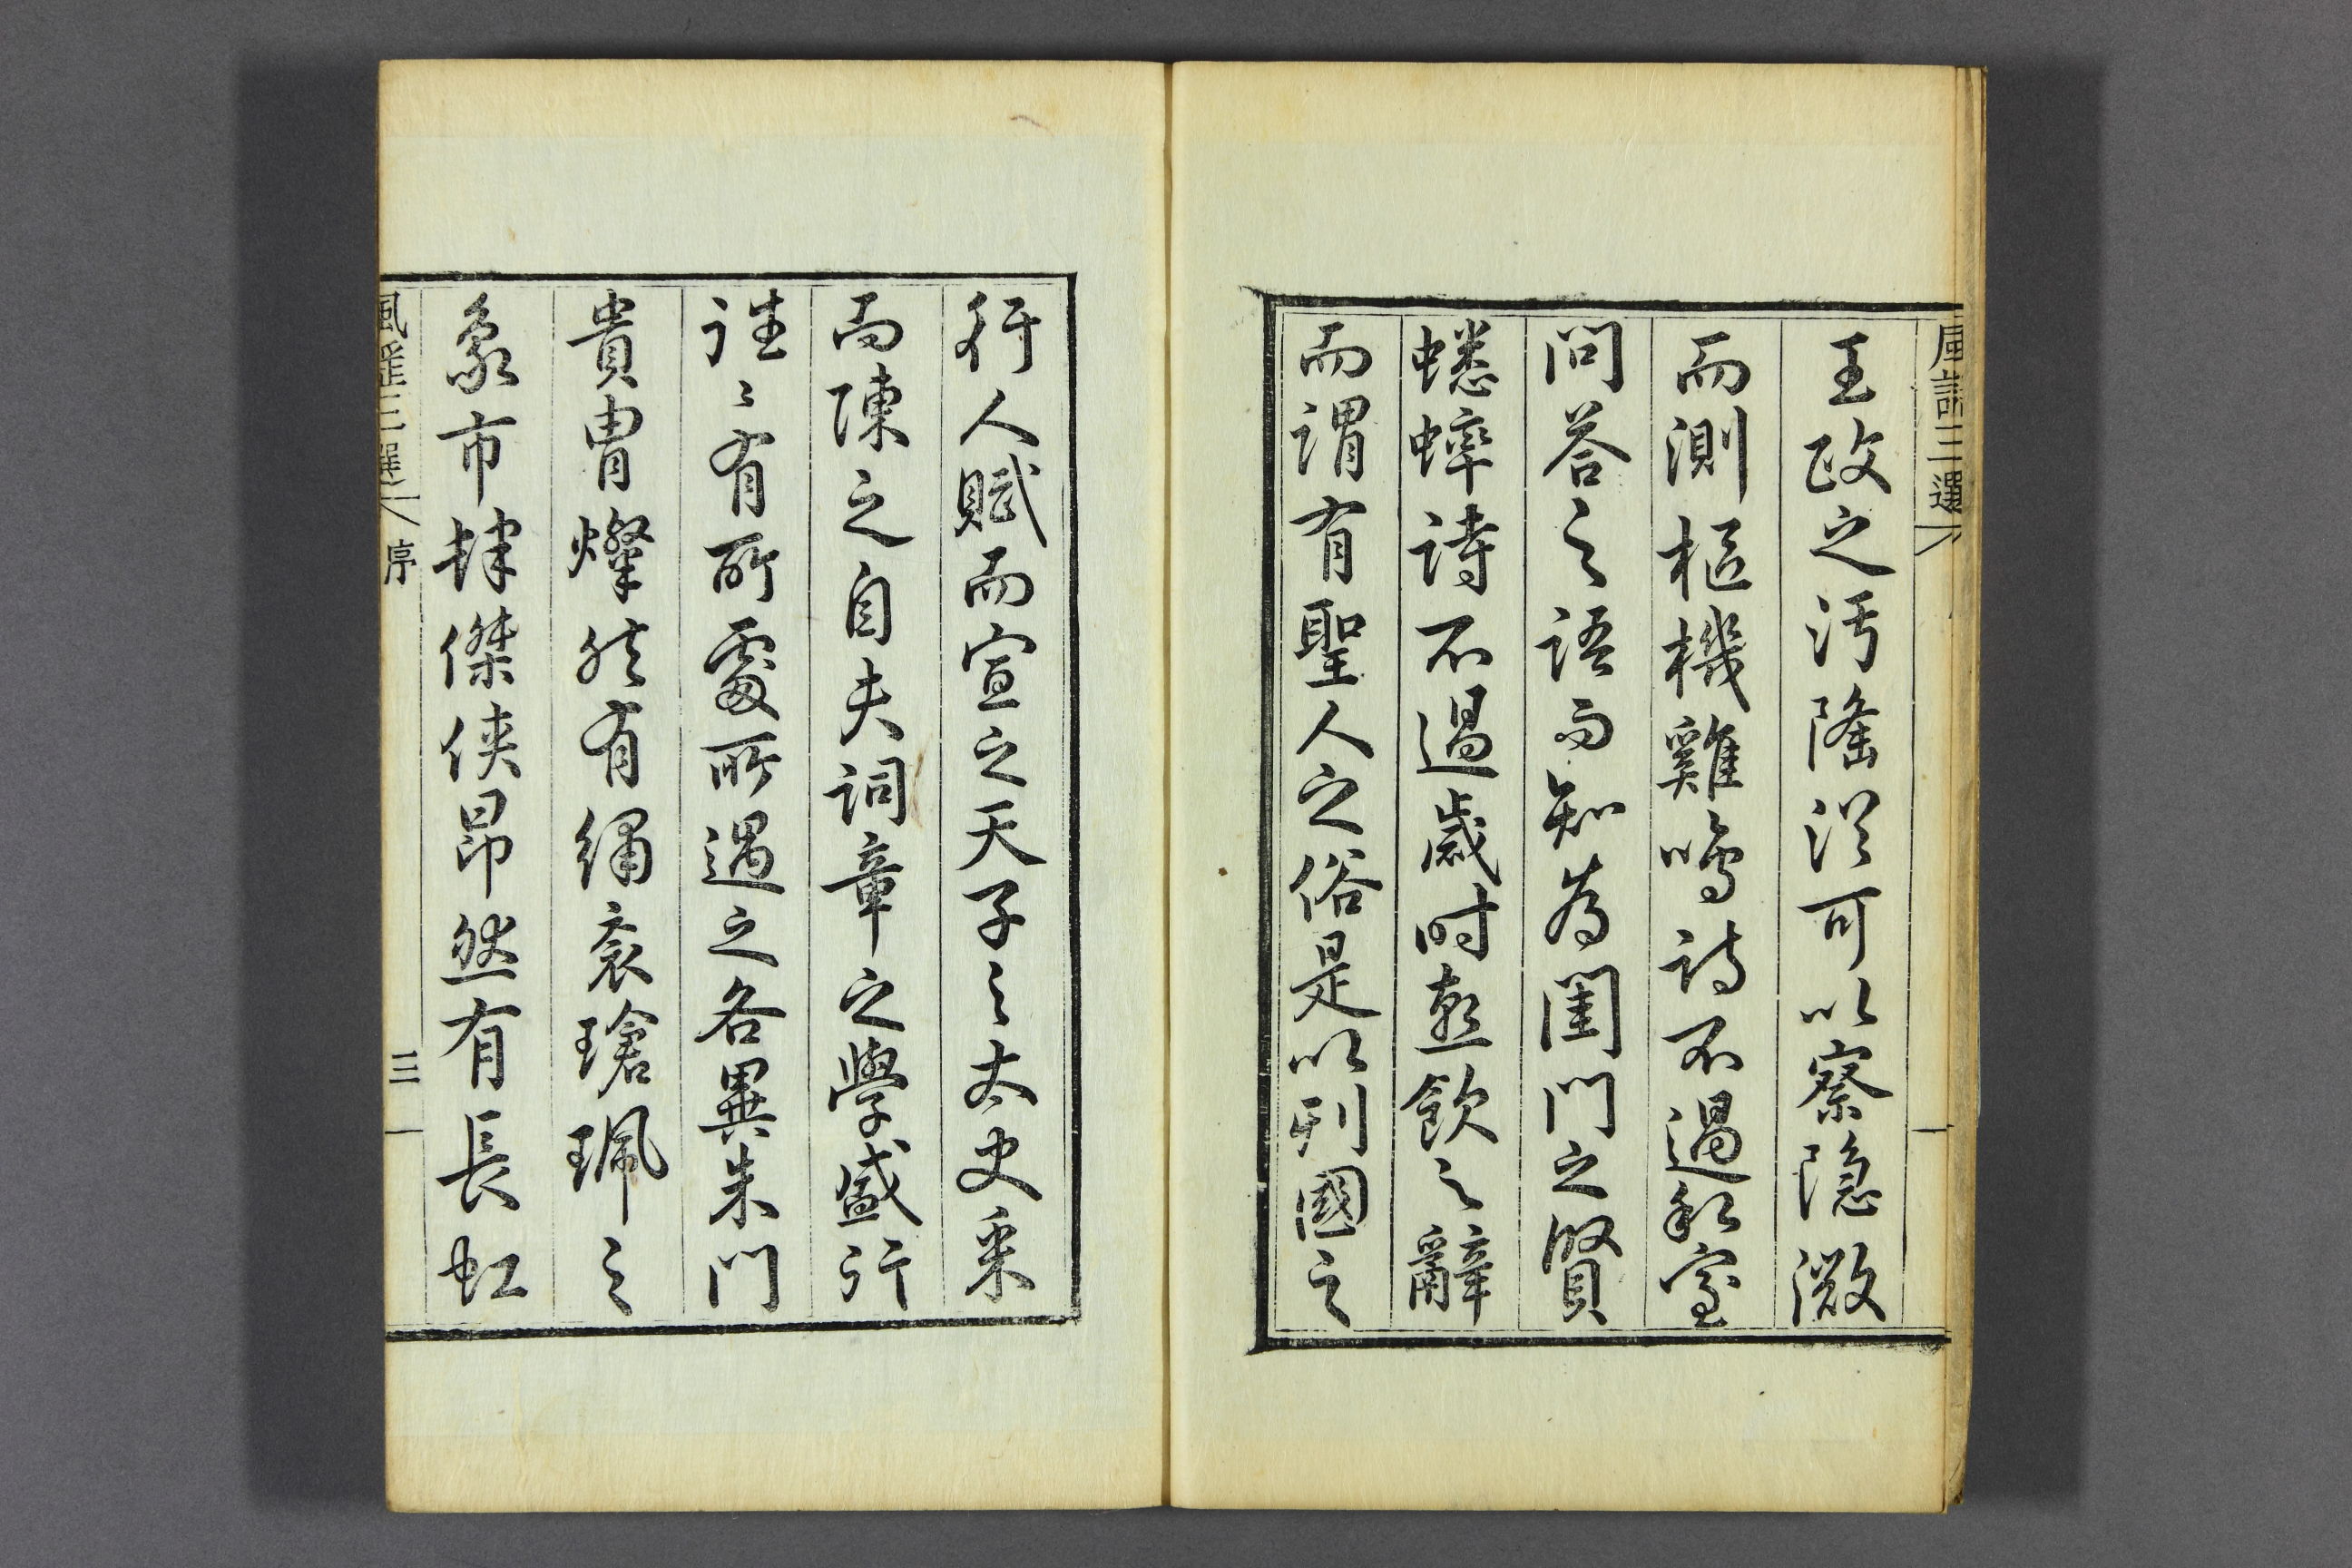 王政之污隆從可以察隐微
而測樞機雞鳴詩不過私室
問荅之語而知為閨門之賢
蟋蟀詩不過歲时燕飲之辭
而謂有聖人之俗是以列國之
行人賦而宣之天子之太史采
而陳之自夫詞章之學盛行
往〻有所處所遇之各異朱門
貴冑燦然有繡衮瑲珮之
象市肆傑俠昂然有長虹
風雅三選
序
三